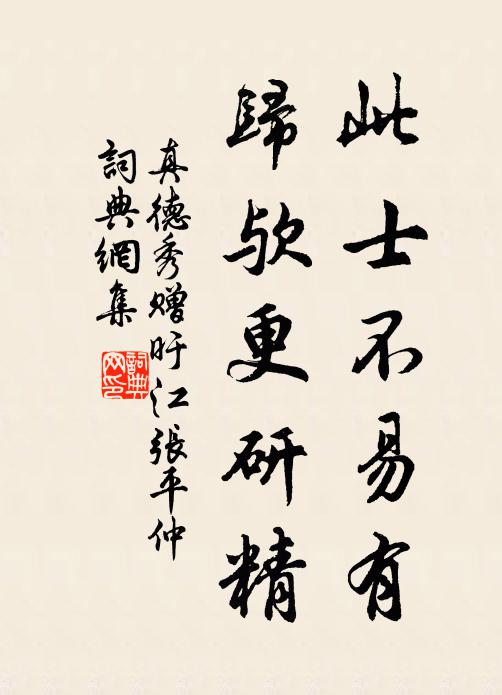 此士不易有
歸欤更研精
真德秀赠旴江張平仲
詞典網集
詞典网印